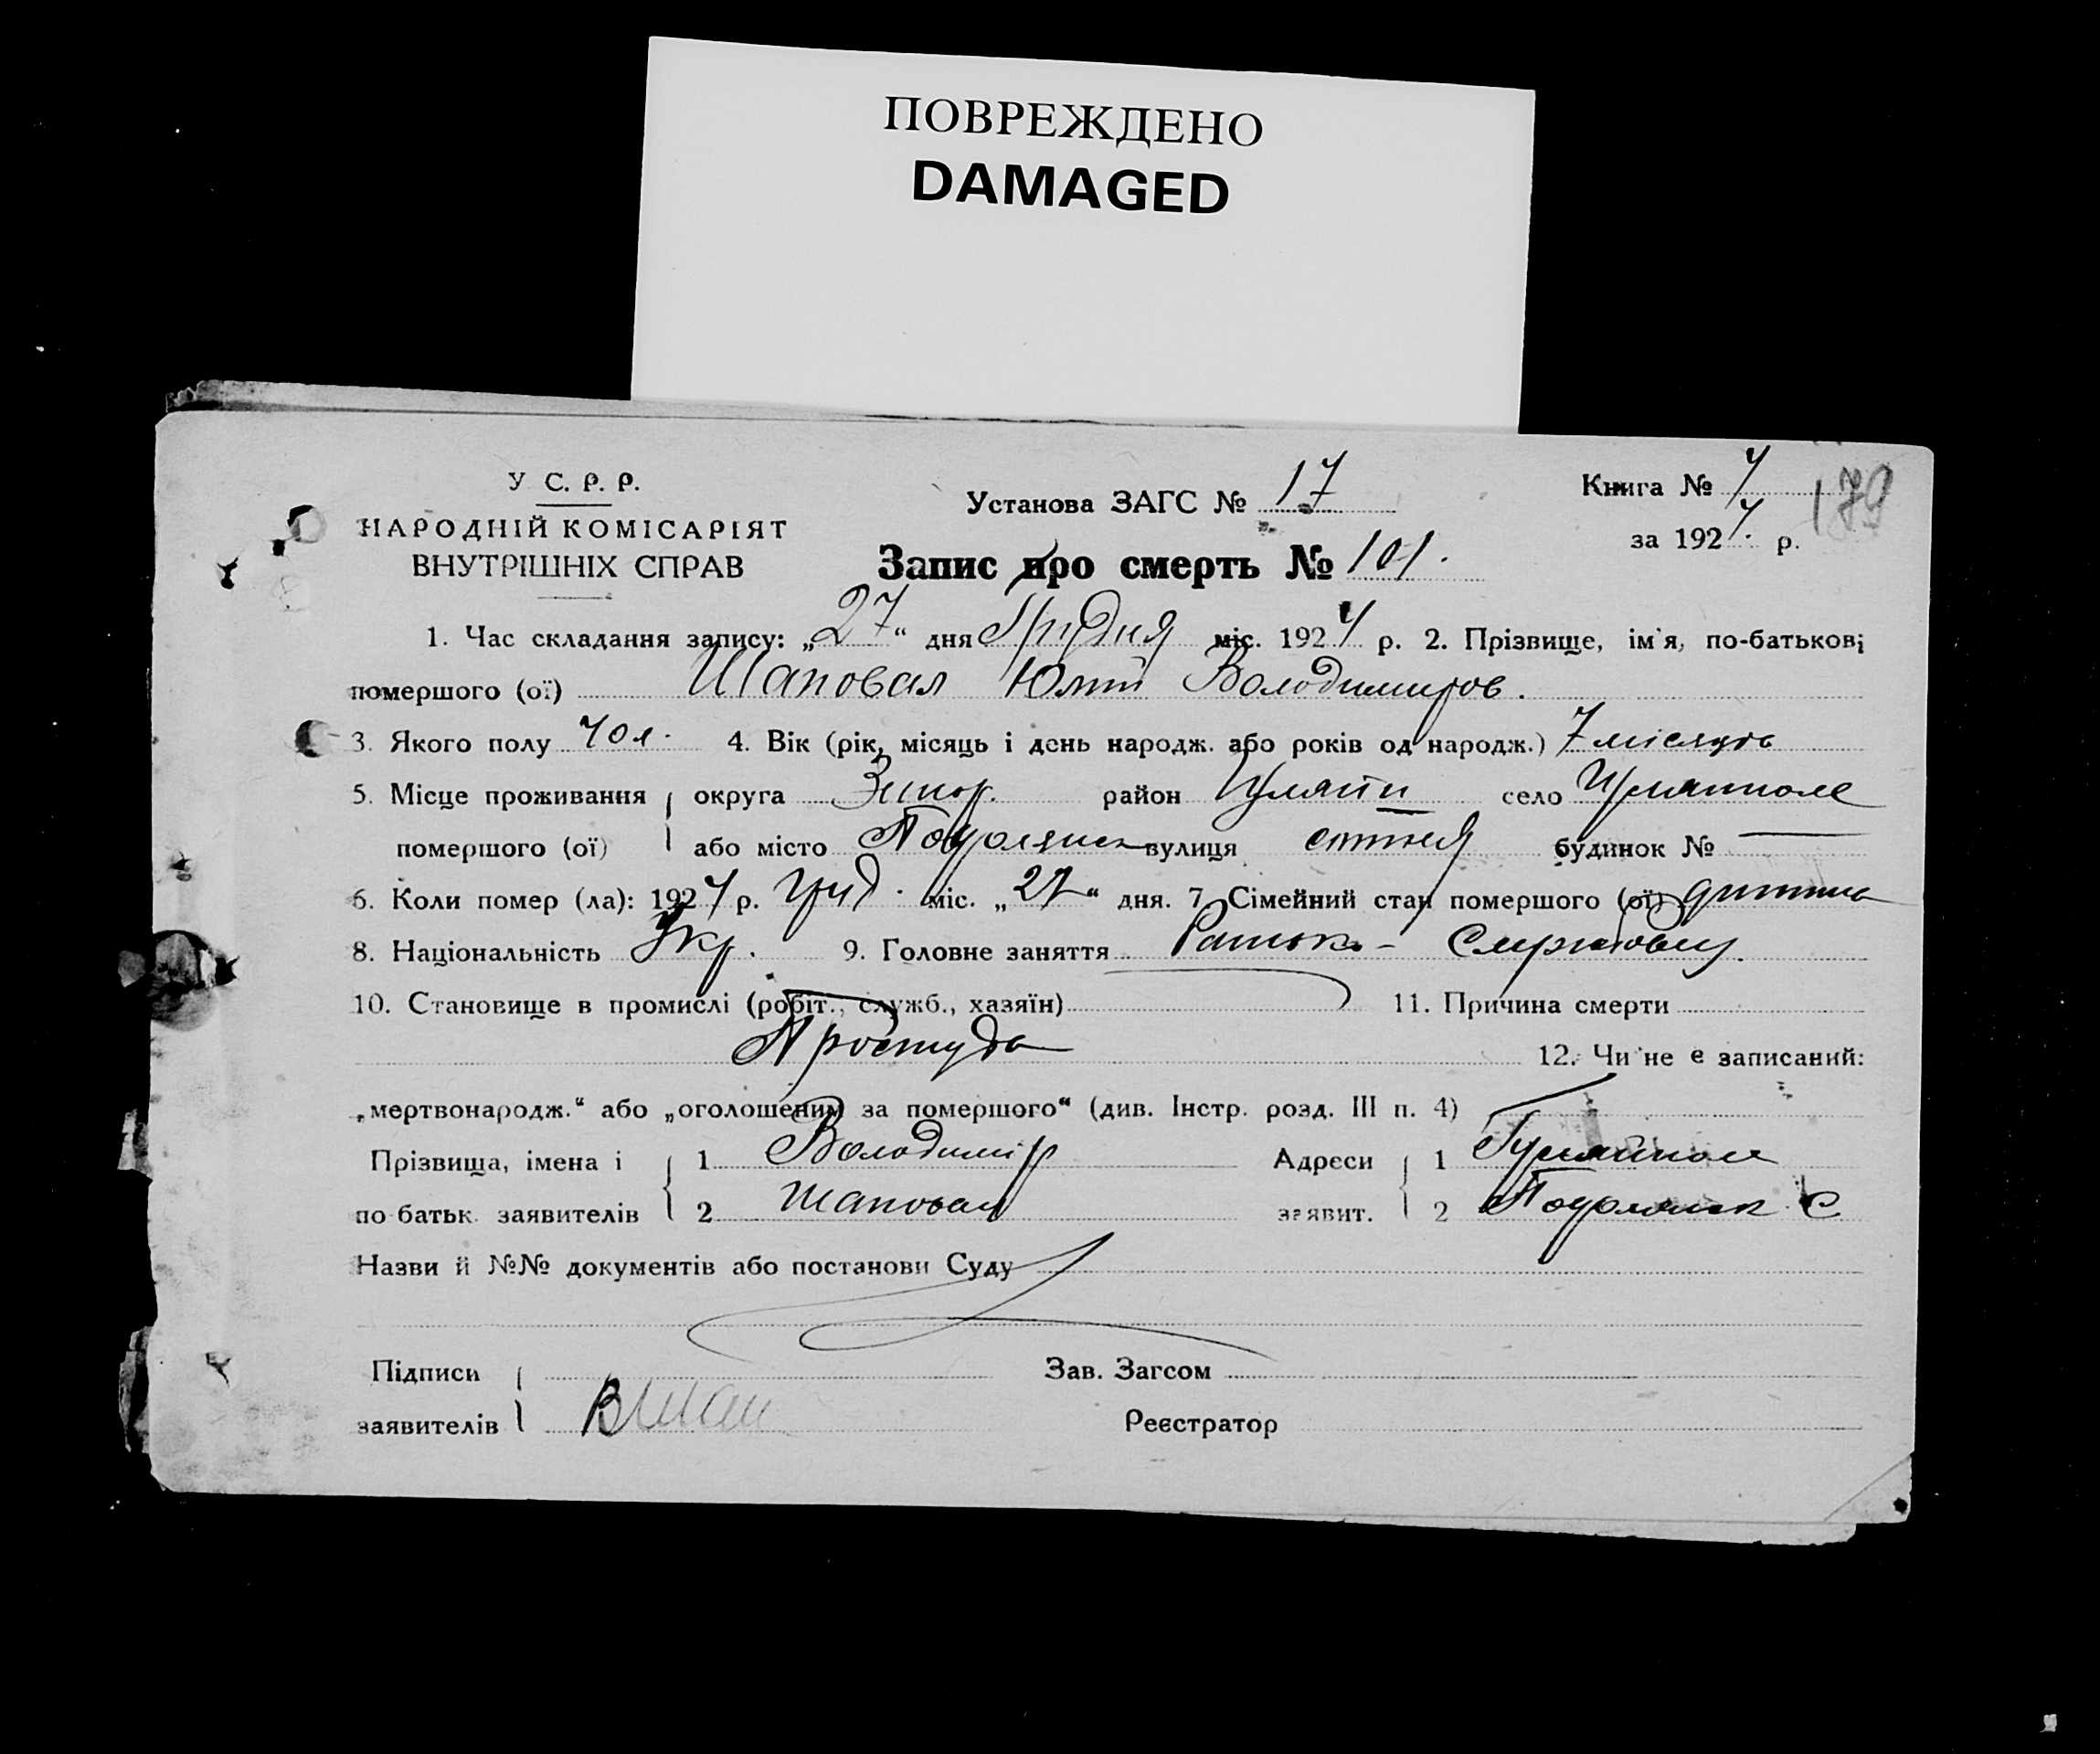 ПОВРЕЖДЕНО
DAMAGED
У С. Р. Р.
НАРОДНІЙ КОМІСАРІЯТ
ВНУТРІШНІХ СПРАВ
Установа ЗАГС № 17
Книга №
179
за 192 р.
Запис про смерть № 101.
1. Час складання запису: „27“ дня Грудня міс. 192 р. 2. Прізвище, ім'я, по-батькові
помершого (ої) Шаповал Володимиров.
3. Якого полу чол. 4. Вік (рік, місяць і день народж. або років од народж.) 7 місяців
5. Місце проживання округа район село
помершого (ої) або місто вулиця будинок № —
6. Коли помер (ла): 192 р. Груд. міс. „27“ дня. 7. Сімейний стан помершого (ої) дитина
8. Національність Укр. 9. Головне заняття
10. Становище в промислі (робіт., служб., хазяїн) 11. Причина смерти
Простуда 12. Чи не є записаний:
„мертвонародж.“ або „оголошеним за помершого“ (див. Інстр. розд. III п. 4)
Прізвища, імена і 1 Володимір Адреси 1 Гуляйполе
по батьк. заявителів 2 Шаповал заявит. 2
Назви й №№ документів або постанови Суду
Підписи Зав. Загсом
заявителів ВШап Реєстратор